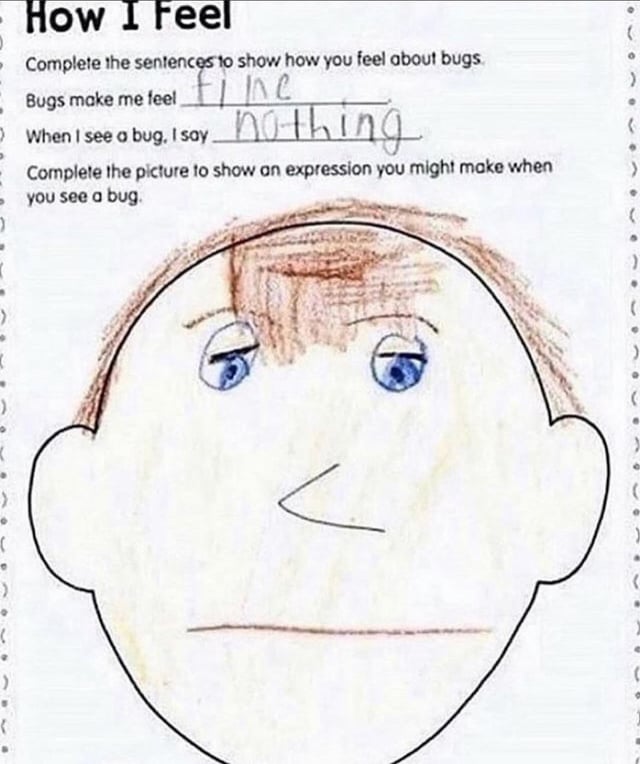 How I Feel
Complete the sentences to show how you feel about bugs.
Bugs make me feel fine.
When I see a bug, I say nothing.
Complete the picture to show an expression you might make when
you see a bug.